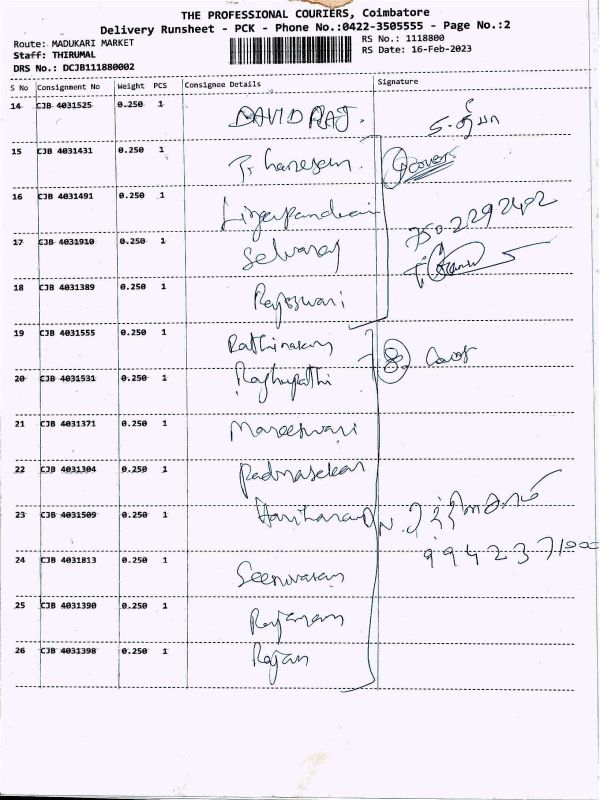 THE PROFESSIONAL COURIERS, Coimbatore
Delivery Runsheet - PCK - Phone No.:0422-3505555 - Page No.:2
Route: MADUKARI MARKET
RS No.: 1118800
Staff: THIRUMAL
RS Date: 16-Feb-2023
DRS No.: DCJB111880002
S No Consignment No Weight PCS Consignee Details Signature
14 CJB 4031525 0.250 1 DAVID RAJ.
15 CJB 4031431 0.250 1 covers
16 CJB 4031491 0.250 1
17 CJB 4031910 0.250 1 Selvaraj
18 CJB 4031389 0.250 1 Rajeswari
19 CJB 4031555 0.250 1 8
20 CJB 4031531 0.250 1 Raghupathi
21 CJB 4031371 0.250 1 Mareeswari
22 CJB 4031304 0.250 1 Padmasekar
23 CJB 4031509 0.250 1 Hariharan
24 CJB 4031813 0.250 1 Seenivasan
25 CJB 4031390 0.250 1
26 CJB 4031398 0.250 1 Rajan